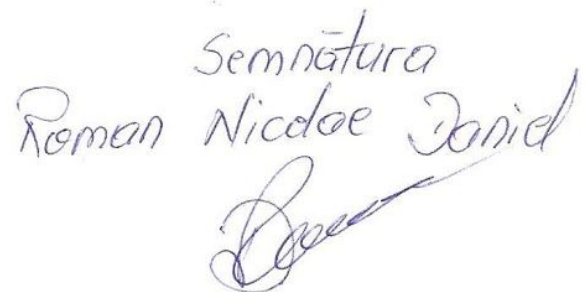 Semnătura
Roman Nicolae Daniel